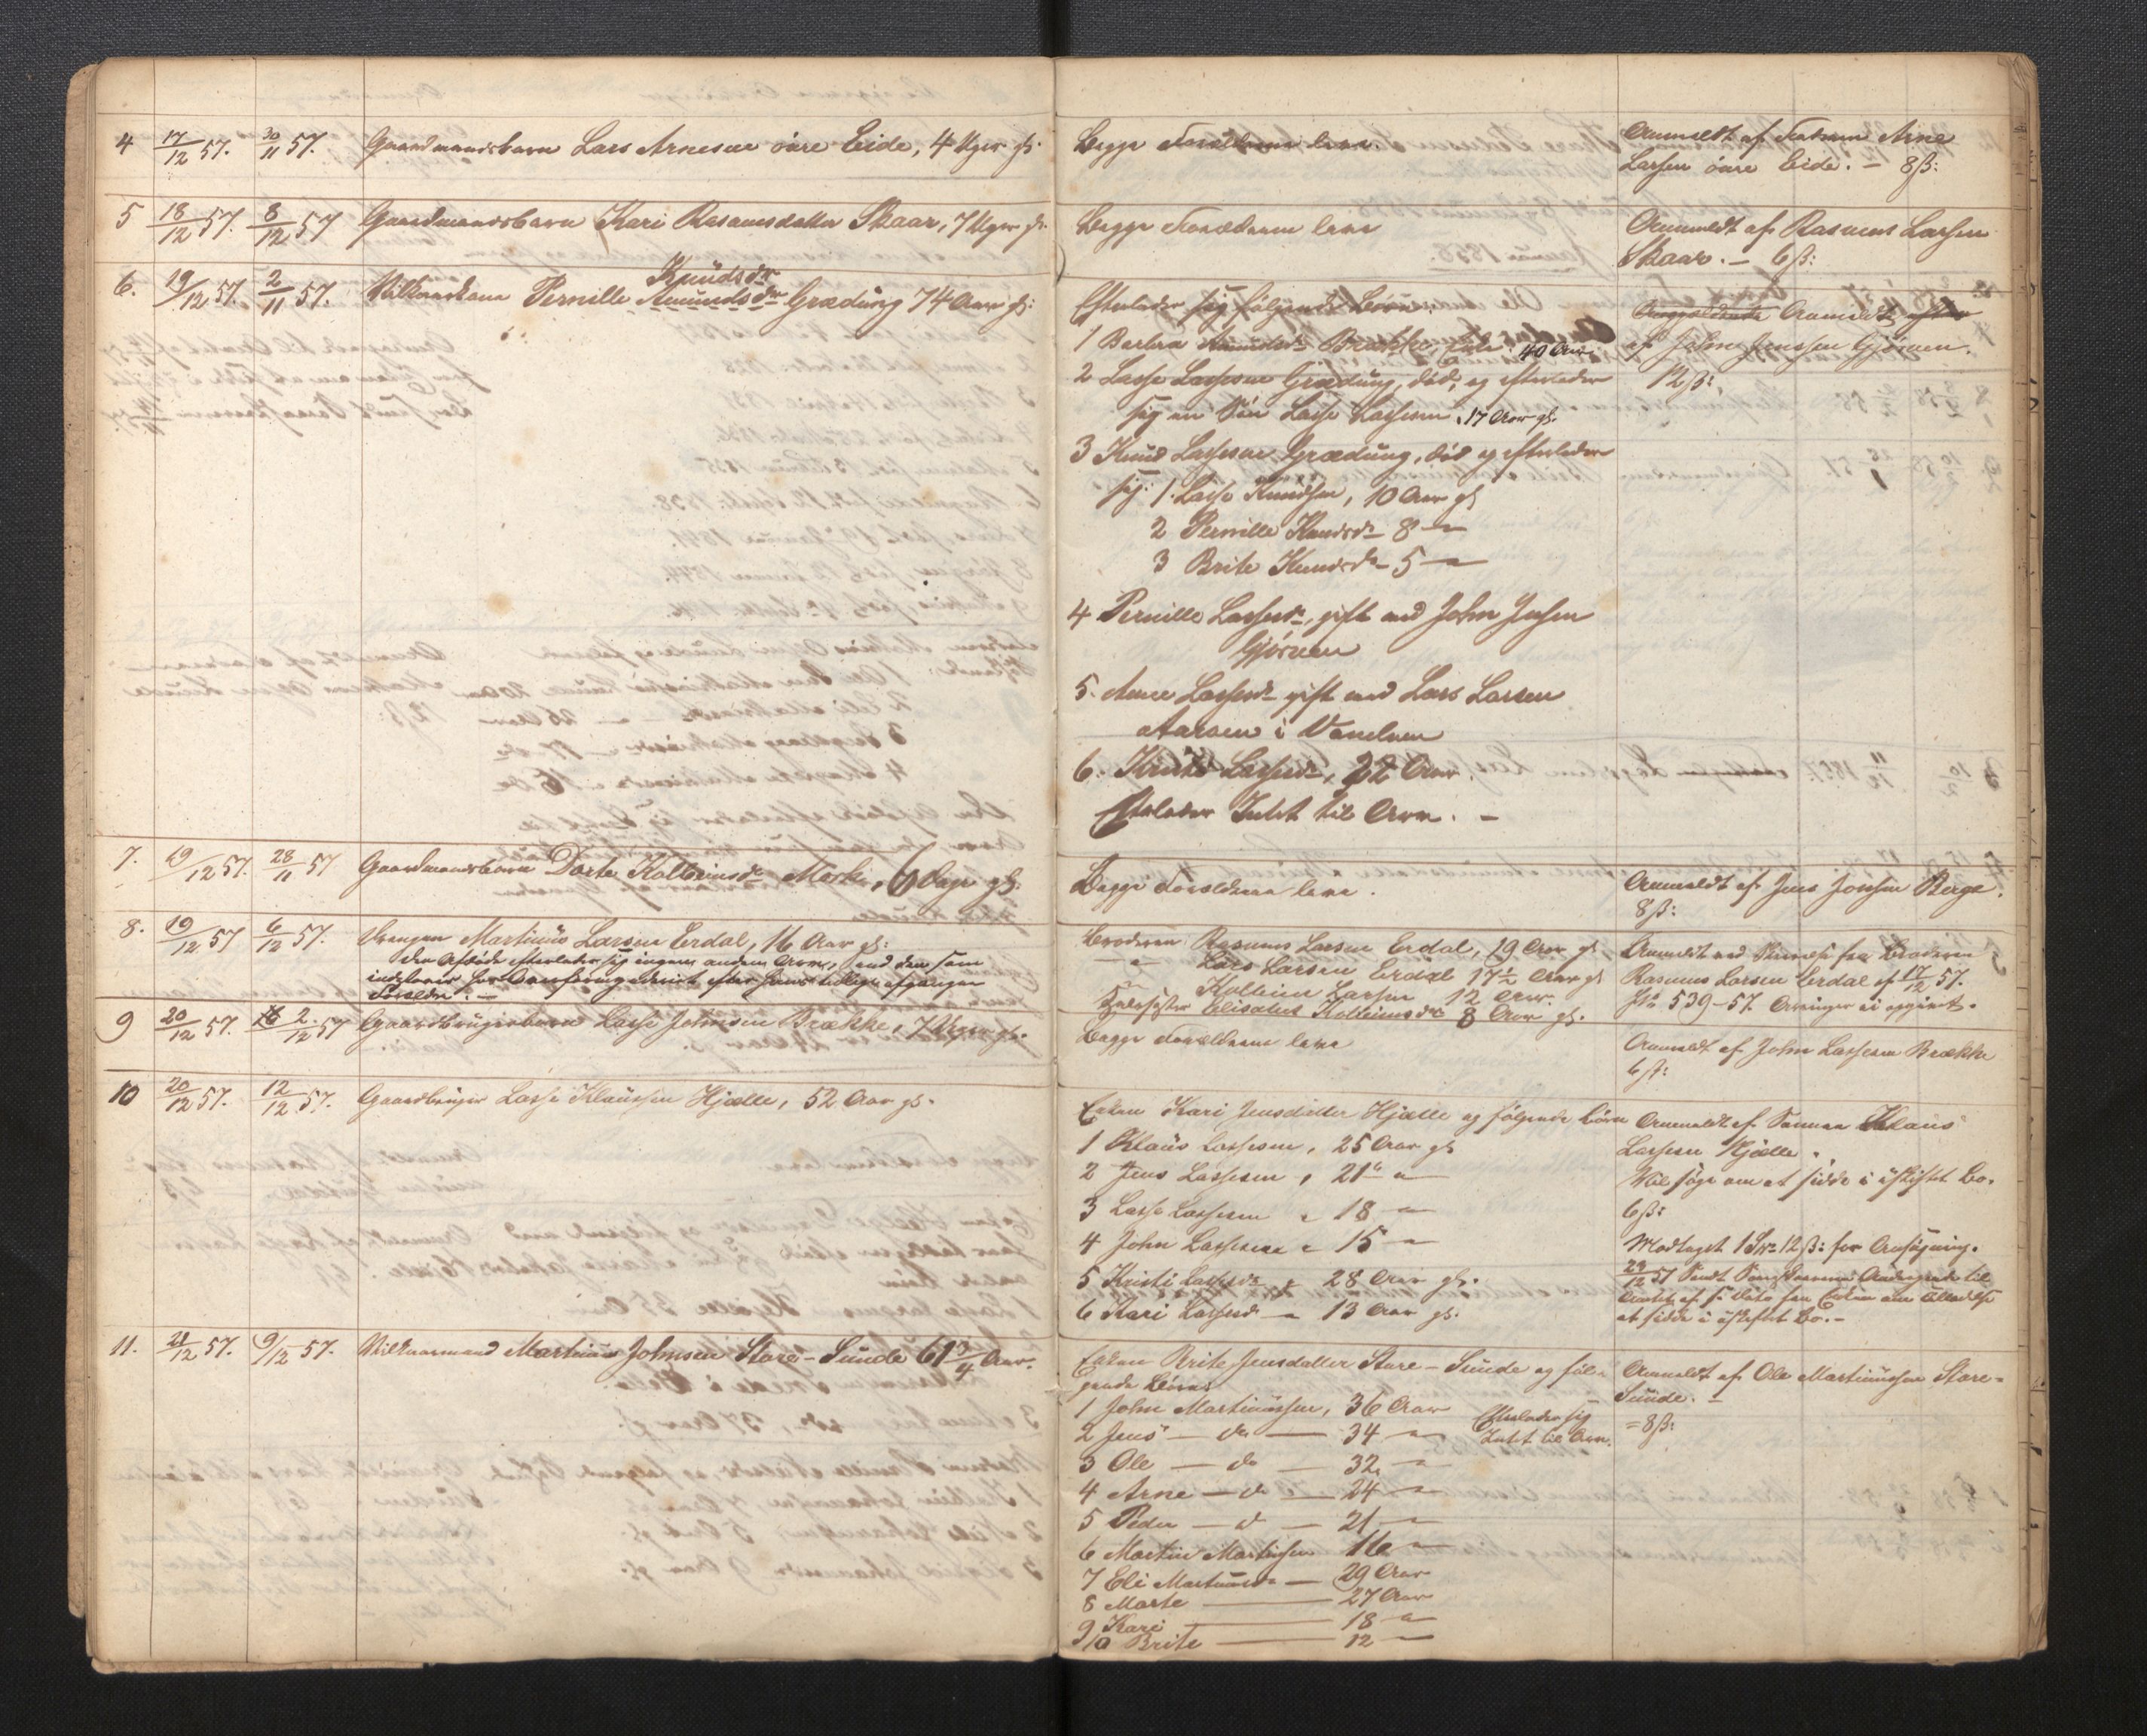 4 17/12 57. 30/11 57. Gaardmandsbarn Lars Arnesen övre Eide, 4 Uger gl.
Begge Forældrene leve.
Anmeldt af Faderen Arne
Larsen övre Eide. – 8 ß:
5 18/12 57. 8/12 57 Gaardmandsbarn Kari Rasmusdatter Skaar, 7 Uger gl.
Begge Forældrene leve
Anmeldt af Rasmus Larsen
Skaar. – 6 ß:
Knudsdr
6. 19/12 57. 2/11 57. Vilkaarskone Pernille Amundsdr Grædung 74 Aar gl:
Efterlader sig følgende Börn:
1 Barbra Brække, 40 Aar
2 Lasse Lassesen Grædung, död, og efterlader
sig en Sön Lasse Lassesen, 17 Aar gl.
3 Knud Lassesen Grædung, död og efterlader
sig: 1. Lasse Knudsen, 10 Aar gl
2 Pernille Knudsdr 8 –"–
3 Brite Knudsdr 5 –"–
4 Pernille Lassesdr, gift med John Jensen
Gjörven
5. Anne Lassesdr gift med Lars Larsen
Aarsen i Vanelven
6. Kristi Lassesdr, 22 Aar
Efterlader Intet til Arv. –
Anmeldt
af John Jenssen Gjörven.
12 ß:
7. 19/12 57. 28/11 57 Gaardmandsbarn Dorte Kolbeinsdr Mork, 6 Dage gl:
Begge Forældrene leve.
Anmeldt af Jens Jonsen Berge.
8 ß:
8. 19/12 57 6/12 57. Drengen Martinus Larsen Erdal, 16 Aar gl:
Den Afdöde efterlader sig ingen anden Arv, end den som
indestaaer hos Overformynderiet efter hans tidligere afgangne
Forældre. –
Broderen Rasmus Larsen Erdal, 19 Aar gl
–"– Lars Larsen Erdal 17½ Aar gl
–"– Kolbein Larsen 12 Aar.
Halvsöster Elisabet Kolbeinsdr 8 Aar gl.
Anmeldt ved Skrivelse fra Broderen
Rasmus Larsen Erdal af 17/12 57.
Jr 539–57. Arvinger ei opgivet.
9 20/12 57. 2/12 57 Gaardbrugerbarn Lasse Johnsen Brække, 7 Uger gl.
Begge Forældrene leve
Anmeldt af John Lassesen Brække
6 ß:
10 20/12 57. 12/12 57. Gaardbruger Lasse Klaussen Hjelle, 52 Aar gl.
Enken Kari Jensdatter Hjelle og følgende Börn
1 Klaus Lassesen, 25 Aar gl
2 Jens Lassesen, 21 –"–
3 Lasse Lassesen " 18 –"–
4 John Lassesen " 15 –"–
5 Kristi Lassesdr " 28 Aar gl.
6 Kari Lassesdr " 13 Aar gl.
Anmeldt af Sönnen Klaus
Lassesen Hjelle.
Vil söge om at sidde i uskiftet Bo.
6 ß:
Modtaget 1 Skr 12 ß: for Ansögning.
29/12 57 Sendt til
Amtet fra Enken om Tilladelse
at sidde i uskiftet Bo. –
11. 21/12 57. 9/12 57. Vilkaarmand Martinus Johnsen Store-Sunde 61¾ Aar.
Enken Brite Jensdatter Store-Sunde og föl-
gende Börn:
1 John Martinussen, 36 Aar
2 Jens – do – 34 –"–
3 Ole – do – 32 –"–
4 Arne – do – 24 –"–
5 Peder – do – 21 –"–
6 Martin Martinsen 16 –"–
7 Eli Martinusdr – 29 Aar
8 Marte – 27 Aar
9 Kari – 18 –"–
10 Brite – 12 –"–
Efterlader sig
Intet til Arv.
Anmeldt af Ole Martinussen Store-
Sunde. –
= 8 ß: